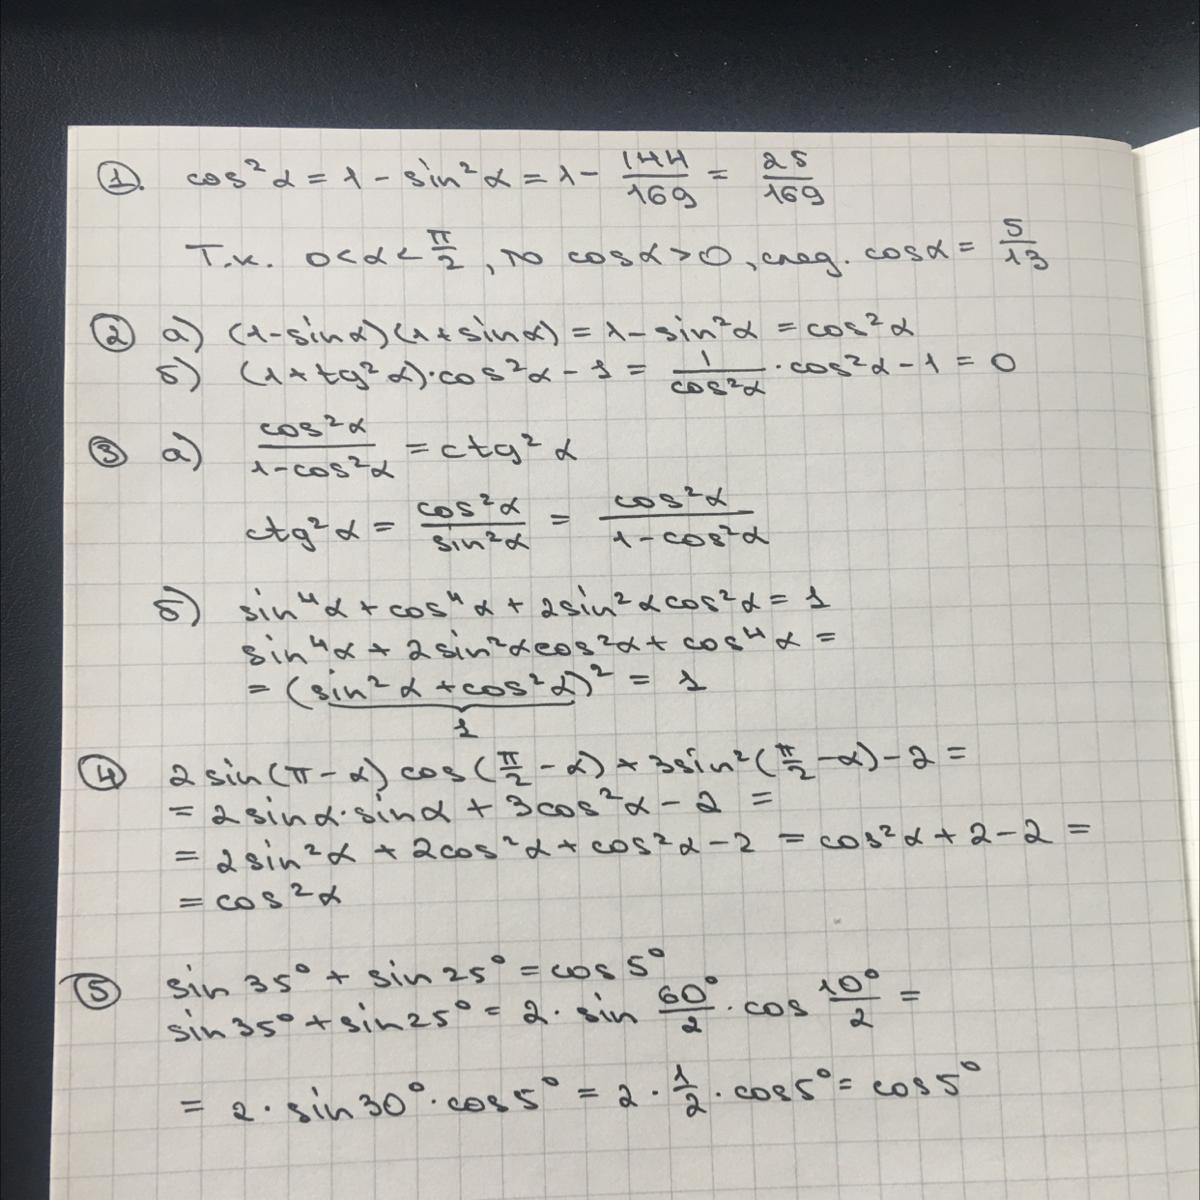 1. cos²α = 1 - sin²α = 1 - 144/169 = 25/169
Т.к. 0 < α < π/2, то cosα > 0, след. cosα = 5/13
2 а) (1-sinα)(1+sinα) = 1 - sin²α = cos²α
б) (1+tg²α)·cos²α - 1 = 1/cos²α · cos²α - 1 = 0
3 а) cos²α/(1-cos²α) = ctg²α
ctg²α = cos²α/sin²α = cos²α/(1-cos²α)
б) sin⁴α + cos⁴α + 2sin²αcos²α = 1
sin⁴α + 2sin²αcos²α + cos⁴α =
= (sin²α + cos²α)² = 1
1
4 2sin(π-α)cos(π/2-α) + 3sin²(π/2-α) - 2 =
= 2sinα·sinα + 3cos²α - 2 =
= 2sin²α + 2cos²α + cos²α - 2 = cos²α + 2 - 2 =
= cos²α
5 sin35° + sin25° = cos5°
sin35° + sin25° = 2·sin 60°/2 · cos 10°/2 =
= 2·sin30°·cos5° = 2·1/2·cos5° = cos5°